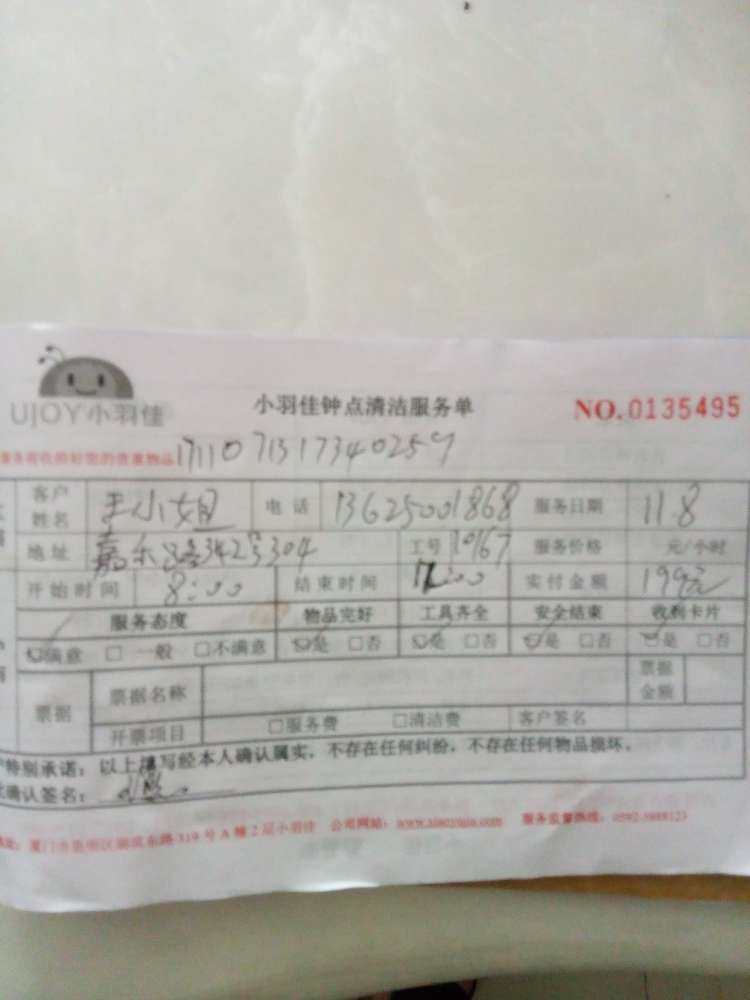 UJOY小羽佳 小羽佳钟点清洁服务单 NO.0135495
1711071317340259
客户姓名 王小姐 电话 13625001868 服务日期 11.8
地址 嘉禾路342号304 工号 10167 服务价格 元/小时
开始时间 8:00 结束时间 12:00 实付金额 199元
服务态度 物品完好 工具齐全 安全结束 收到卡片
☑满意 □一般 □不满意 ☑是 □否 ☑是 □否 ☑是 □否 ☑是 □否
票据 票据名称 票据金额
开票项目 □服务费 □清洁费 客户签名
特别承诺：以上填写经本人确认属实，不存在任何纠纷，不存在任何物品损坏。
确认签名：
319号A幢2层小羽佳 公司网站： 服务监督热线：